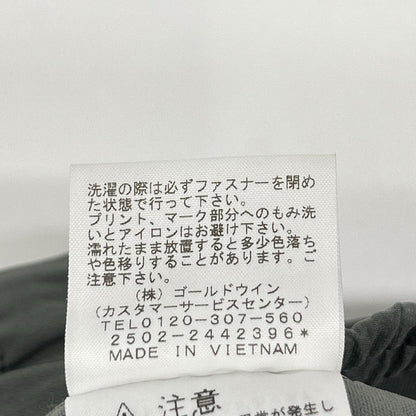 洗濯の際は必ずファスナーを閉め
た状態で行って下さい。
プリント、マーク部分へのもみ洗
いとアイロンはお避け下さい。
濡れたまま放置すると多少色落ち
や色移りすることがあります。ご
注意下さい。
(株) ゴールドウイン
(カスタマーサービスセンター)
TEL0120-307-560
2502-2442396*
MADE IN VIETNAM
⚠注意
が発生し